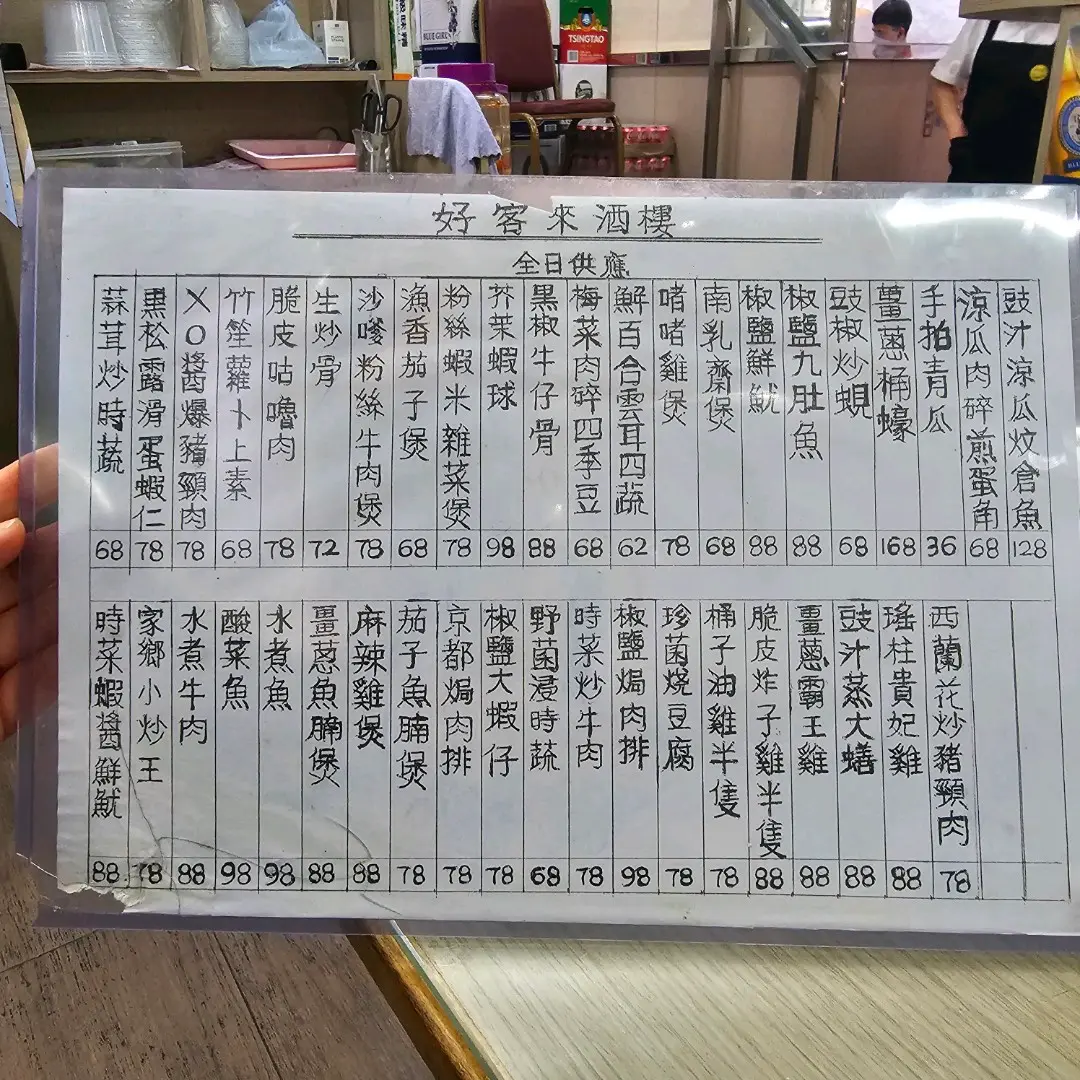 TSINGTAO
好客來酒樓
全日供應
豉汁涼瓜炆倉魚 128
涼瓜肉碎煎蛋角 68
手拍青瓜 36
薑蔥桶蠔 168
豉椒炒蜆 68
椒鹽九肚魚 88
椒鹽鮮魷 88
南乳齋煲 68
啫啫雞煲 78
鮮百合雲耳四蔬 62
梅菜肉碎四季豆 68
黑椒牛仔骨 88
芥茉蝦球 98
粉絲蝦米雜菜煲 78
漁香茄子煲 68
沙嗲粉絲牛肉煲 78
生炒骨 72
脆皮咕嚕肉 78
竹笙蘿卜上素 68
XO醬爆豬頸肉 78
黑松露滑蛋蝦仁 78
蒜茸炒時蔬 68
西蘭花炒豬頸肉 78
瑤柱貴妃雞 88
豉汁蒸大鱔 88
薑蔥霸王雞 88
脆皮炸子雞半隻 88
桶子油雞半隻 78
珍菌燒豆腐 78
椒鹽焗肉排 98
時菜炒牛肉 78
野菌浸時蔬 68
椒鹽大蝦仔 78
京都焗肉排 78
茄子魚腩煲 78
麻辣雞煲 88
薑葱魚腩煲 88
水煮魚 98
酸菜魚 98
水煮牛肉 88
家鄉小炒王 78
時菜蝦醬鮮魷 88